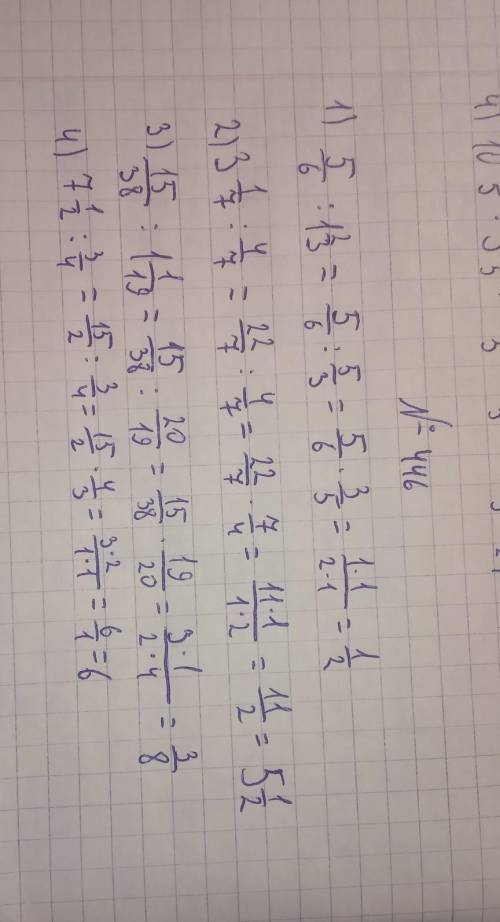 № 446
1) 5/6 : 1 2/3 = 5/6 : 5/3 = 5/6 · 3/5 = 1·1/2·1 = 1/2
2) 3 1/7 : 4/7 = 22/7 : 4/7 = 22/7 · 7/4 = 11·1/1·2 = 11/2 = 5 1/2
3) 15/38 : 1 1/19 = 15/38 : 20/19 = 15/38 · 19/20 = 3·1/2·4 = 3/8
4) 7 1/2 : 3/4 = 15/2 : 3/4 = 15/2 · 4/3 = 3·2/1·1 = 6/1 = 6